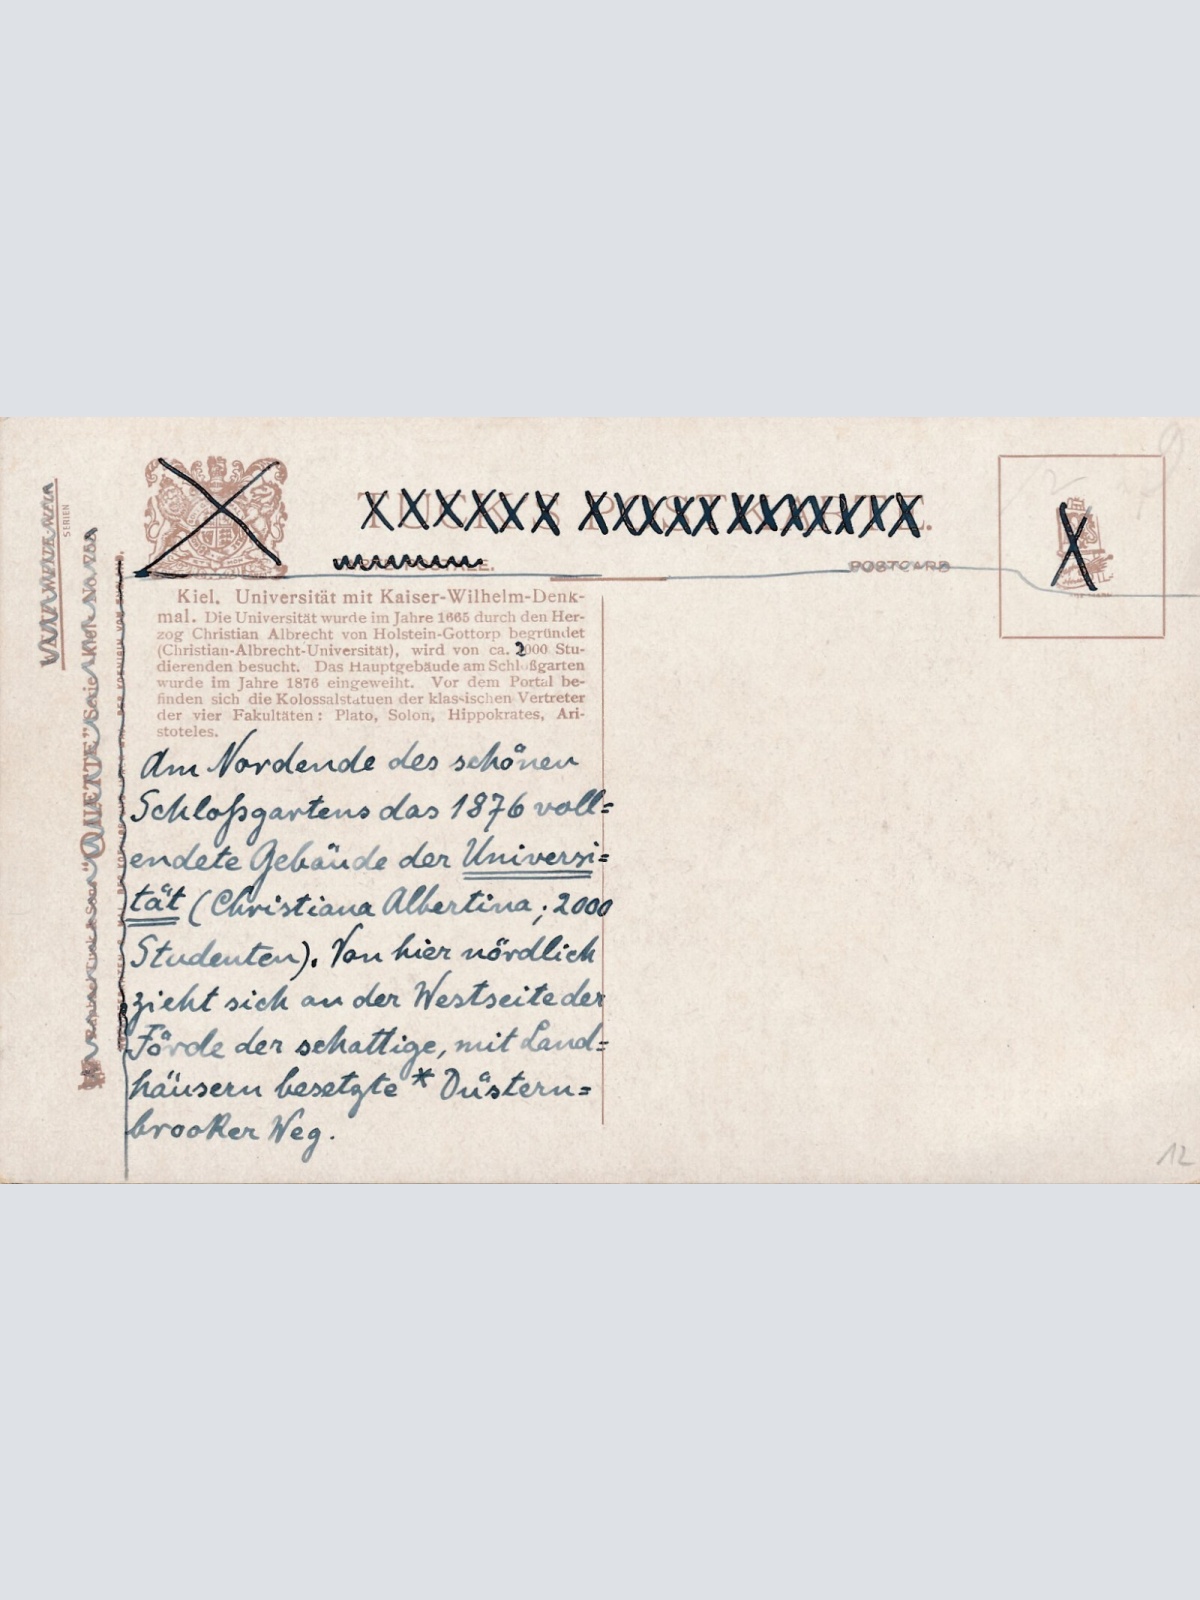 POSTCARD
Kiel. Universität mit Kaiser-Wilhelm-Denk-
mal. Die Universität wurde im Jahre 1665 durch den Her-
zog Christian Albrecht von Holstein-Gottorp begründet
(Christian-Albrecht-Universität), wird von ca. 2000 Stu-
dierenden besucht. Das Hauptgebäude am Schloßgarten
wurde im Jahre 1876 eingeweiht. Vor dem Portal be-
finden sich die Kolossalstatuen der klassischen Vertreter
der vier Fakultäten: Plato, Solon, Hippokrates, Ari-
stoteles.
Am Nordende des schönen
Schloßgartens das 1876 voll=
endete Gebäude der Universi=
tät (Christiana Albertina; 2000
Studenten). Von hier nördlich
zieht sich an der Westseite der
Förde der schattige, mit Land=
häusern besetzte * Düstern=
brooker Weg.
SERIEN
"OILETTE" Serie
12